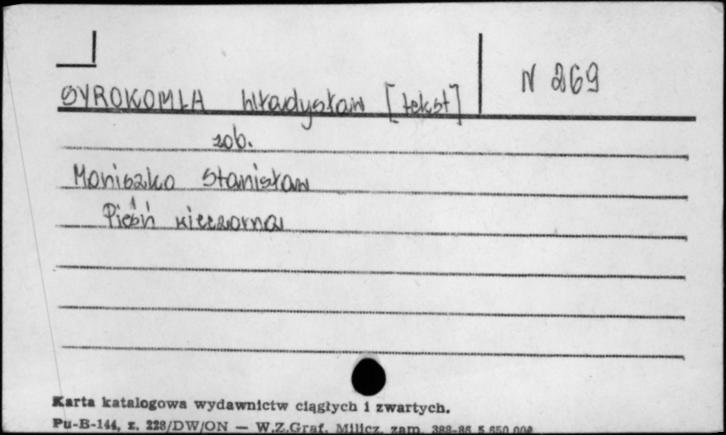 N 269
SYROKOMLA Władysław [tekst]
zob.
Moniuszko Stanisław
Pieśń wieczorna
Karta katalogowa wydawnictw ciągłych i zwartych.
Pu-B-144, z. 228/DW/ON — W.Z.Graf. Milicz, zam. 388-86 5 650 000